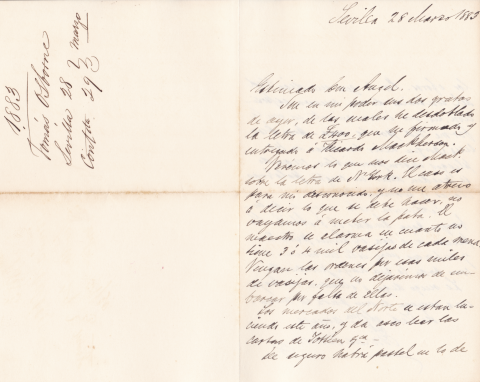 1883
Tomás Osborne
Sevilla 28 marzo
Contda 29
Sevilla 28 Marzo 1883
Estimado Don Angel.
en mi poder sus dos gratas
de ayer, de las cuales he desdoblado
la letra de £400, que he firmado y
entregado á Ricardo Mackherson.
Veremos lo que nos dice Mack.
sobre la letra de N. York. El caso es
para mi desconocido, y no me atrevo
á decir lo que se debe hacer, no
vayamos á meter la pata. El
maestro se alarma en cuanto no
tiene 3 ó 4 mil vasijas de cada mena.
Vengan las ordenes por esos miles
de vasijas, que no dejaremos de em-
barcar por falta de ellas.
Los mercados del Norte se estan lu-
ciendo este año, y da asco leer las
cartas de
De seguro habrá pastel en lo de